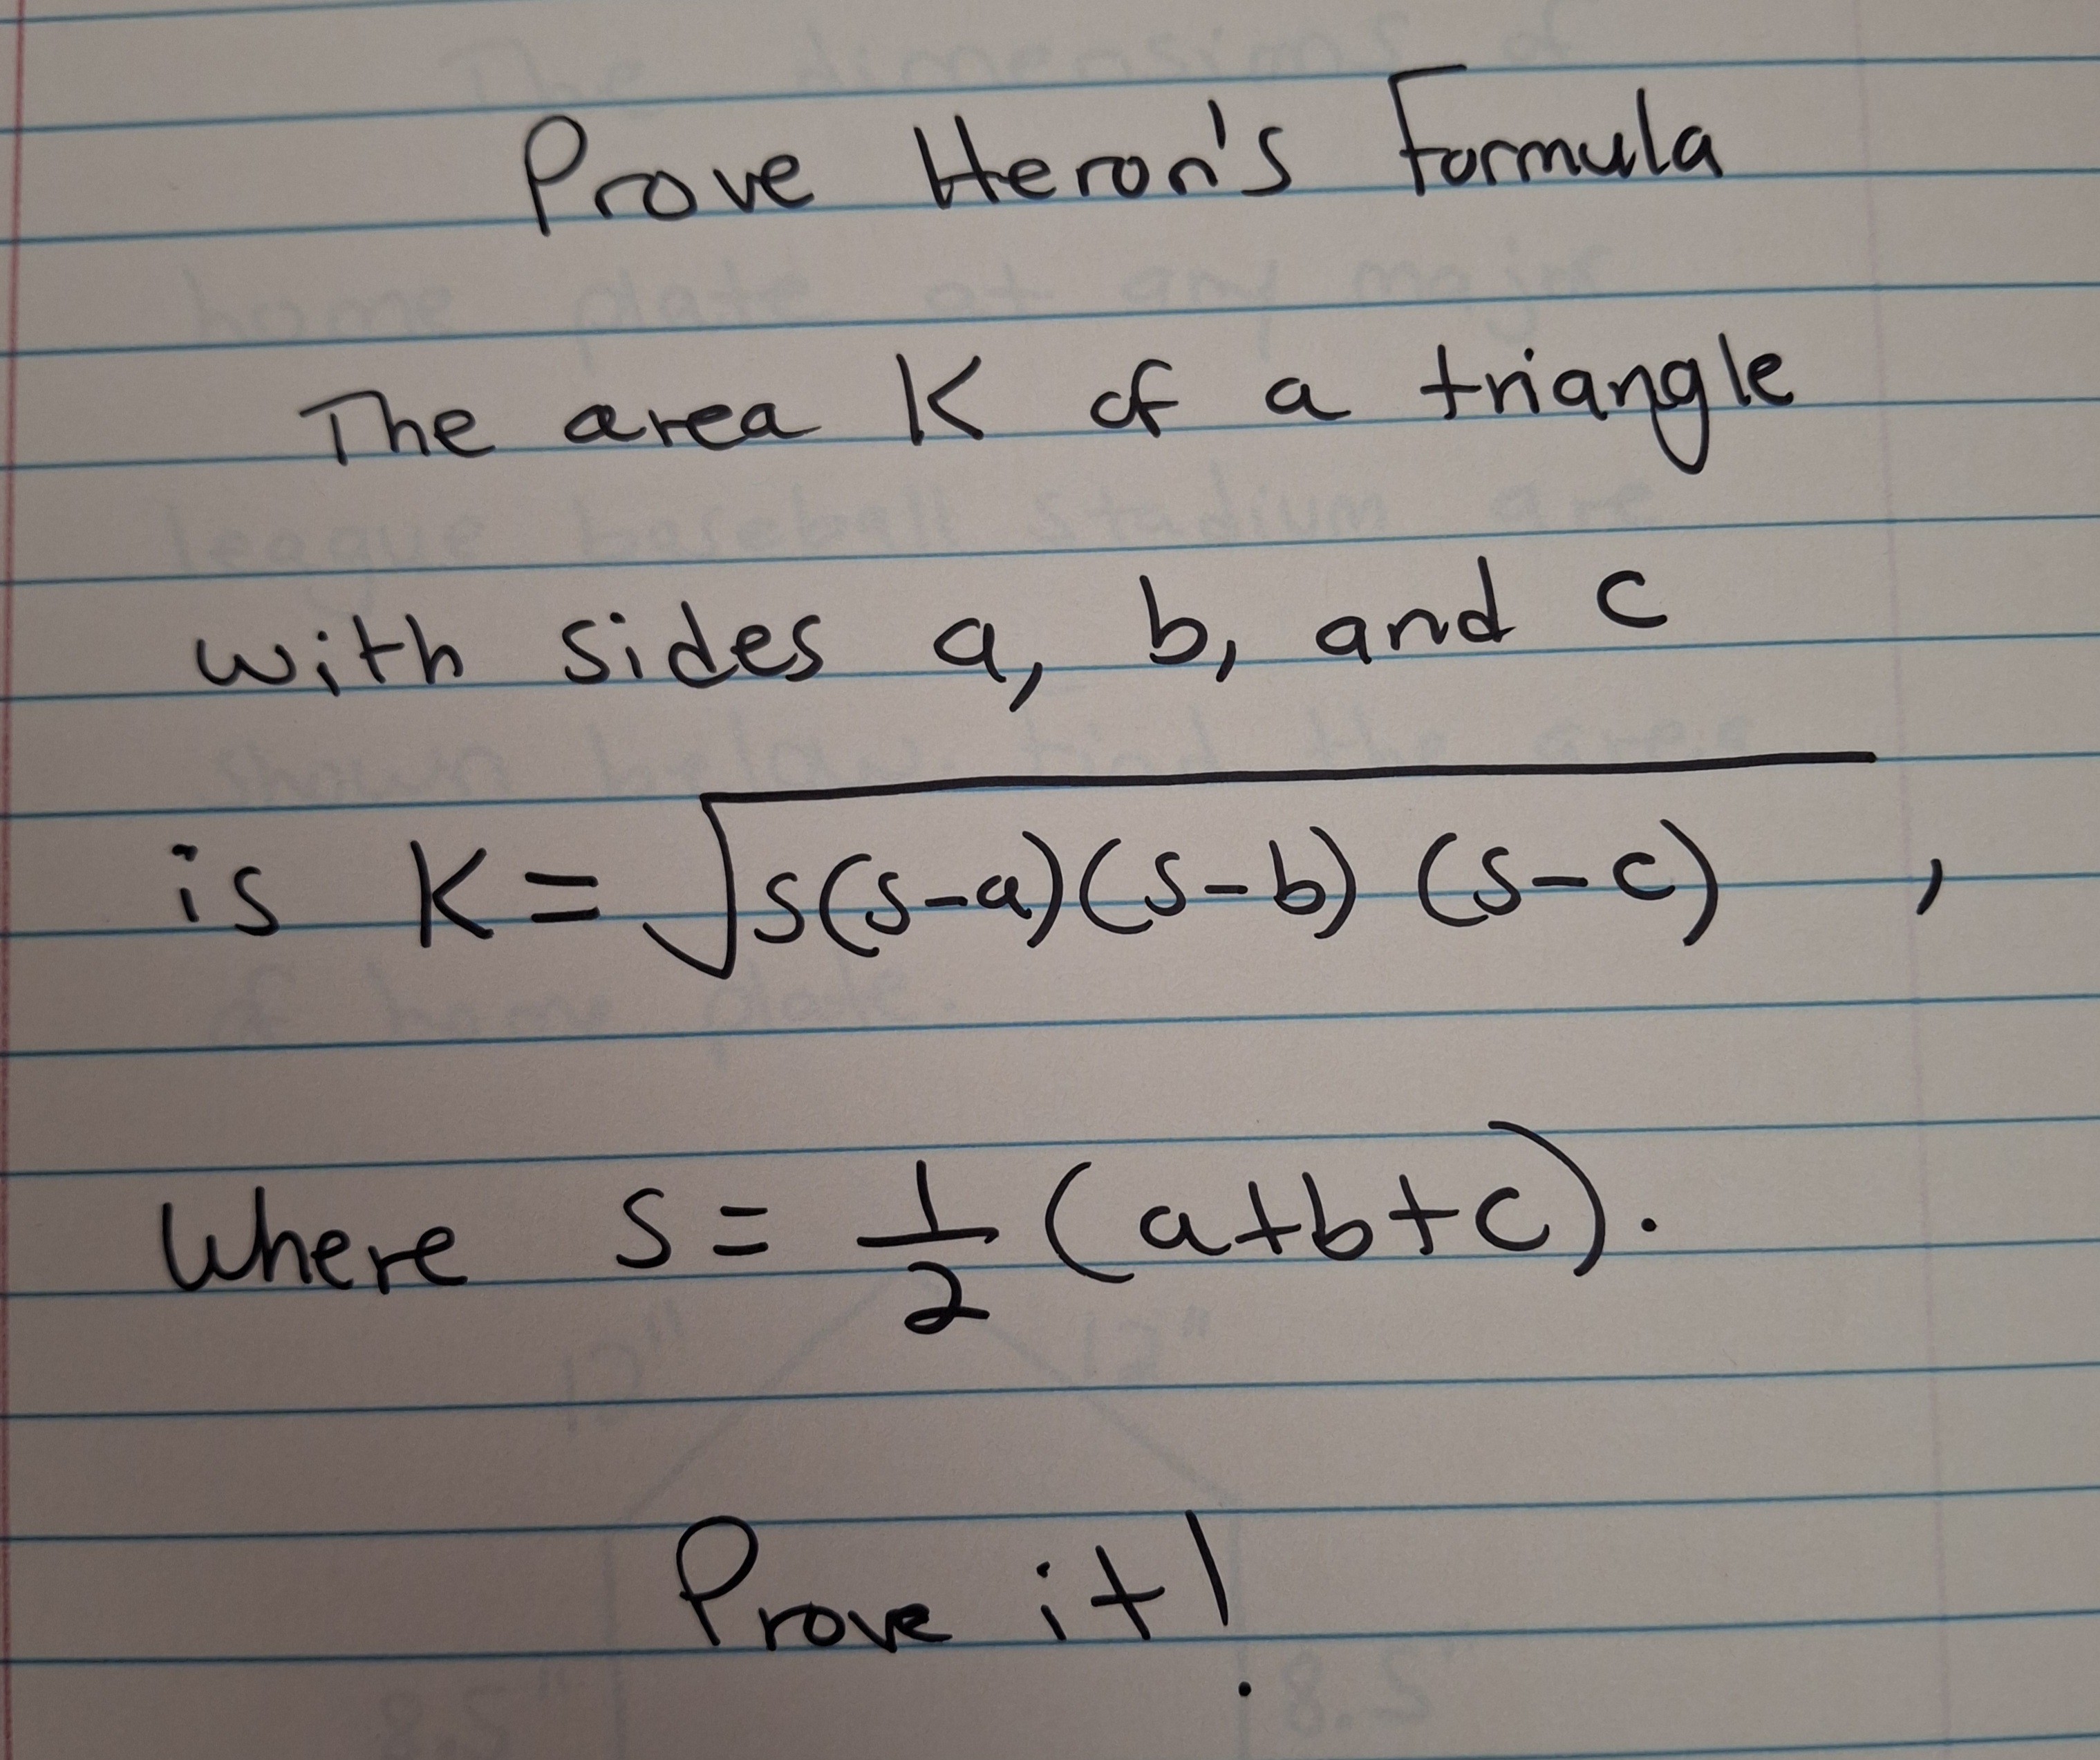 Prove Heron's Formula
The area K of a triangle
with sides a, b, and c
is K = √s(s-a)(s-b)(s-c) ,
Where s = 1/2 (a+b+c).
Prove it!